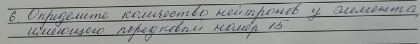 6. Определите количество нейтронов у элемента
имеющего порядковый номер 15